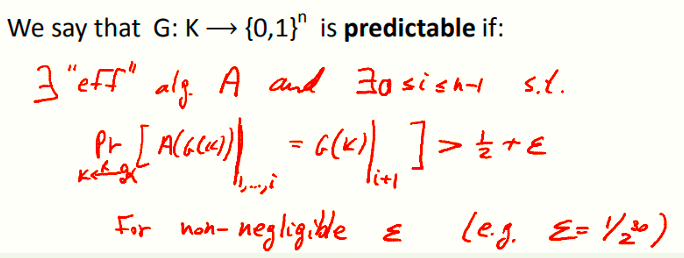 We say that G: K ⟶ {0,1}ⁿ is predictable if:
∃ "eff" alg. A and ∃ 0≤i≤n-1 s.t.
Pr_{K←ᴿ𝒦} [ A(G(K))|_{1,…,i} = G(K)|_{i+1} ] > 1/2 + ε
For non-negligible ε (e.g. ε = 1/2³⁰)